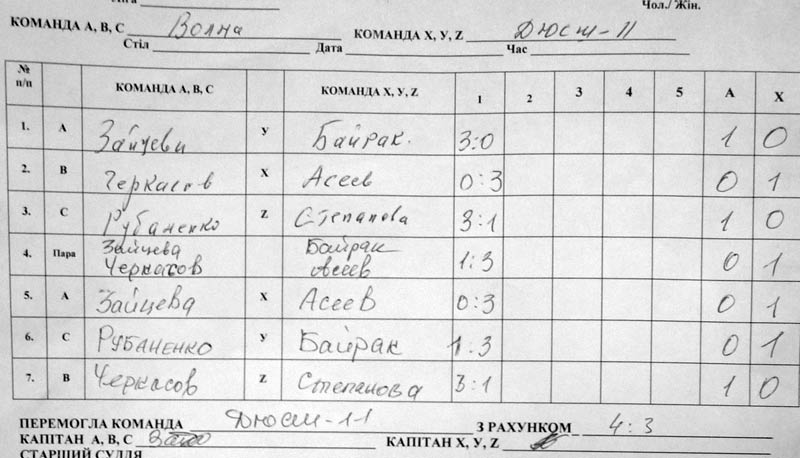 Чол./ Жін.
КОМАНДА А, В, С Волна КОМАНДА Х, У, Z ДЮСШ-11
Стіл Дата Час
№ п/п КОМАНДА А, В, С КОМАНДА Х, У, Z 1 2 3 4 5 А Х
1. А У Байрак. 3:0 1 0
2. В Черкасов Х Асеев 0:3 0 1
3. С Рубаненко Z Степанова 3:1 1 0
4. Пара Зайцева Черкасов Байрак Асеев 1:3 0 1
5. А Зайцева Х Асеев 0:3 0 1
6. С Рубаненко У Байрак 1:3 0 1
7. В Черкасов Z Степанова 3:1 1 0
ПЕРЕМОГЛА КОМАНДА ДЮСШ-11 З РАХУНКОМ 4:3
КАПІТАН А, В, С КАПІТАН Х, У, Z
СТАРШИЙ СУДДЯ